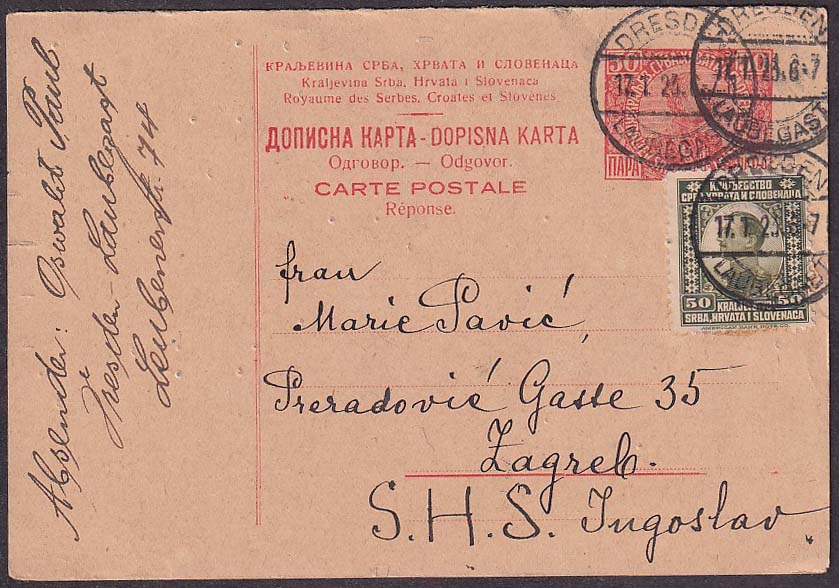 КРАЉЕВИНА СРБА, ХРВАТА И СЛОВЕНАЦА
Kraljevina Srba, Hrvata i Slovenaca
Royaume des Serbes, Croates et Slovènes
ДОПИСНА КАРТА - DOPISNA KARTA
Одговор. — Odgovor.
CARTE POSTALE
Réponse.
frau
Marie Pavić,
Preradović Gasse 35
Zagreb.
S.H.S. Jugoslav
Absender: Oswald Paul
Dresden-Laubegast
Leubenerstr. 74
50
ПАРА
DRESDEN
17.1.23.
LAUBEGAST
DRESDEN
17.1.23.6-7
LAUBEGAST
DRESDEN
17.1.23.6-7
LAUBEGAST
КРАЉЕВСТВО
СРБА, ХРВАТА И СЛОВЕНАЦА
50 KRALJEVSTVO 50
SRBA, HRVATA I SLOVENACA
AMERICAN BANK NOTE CO.